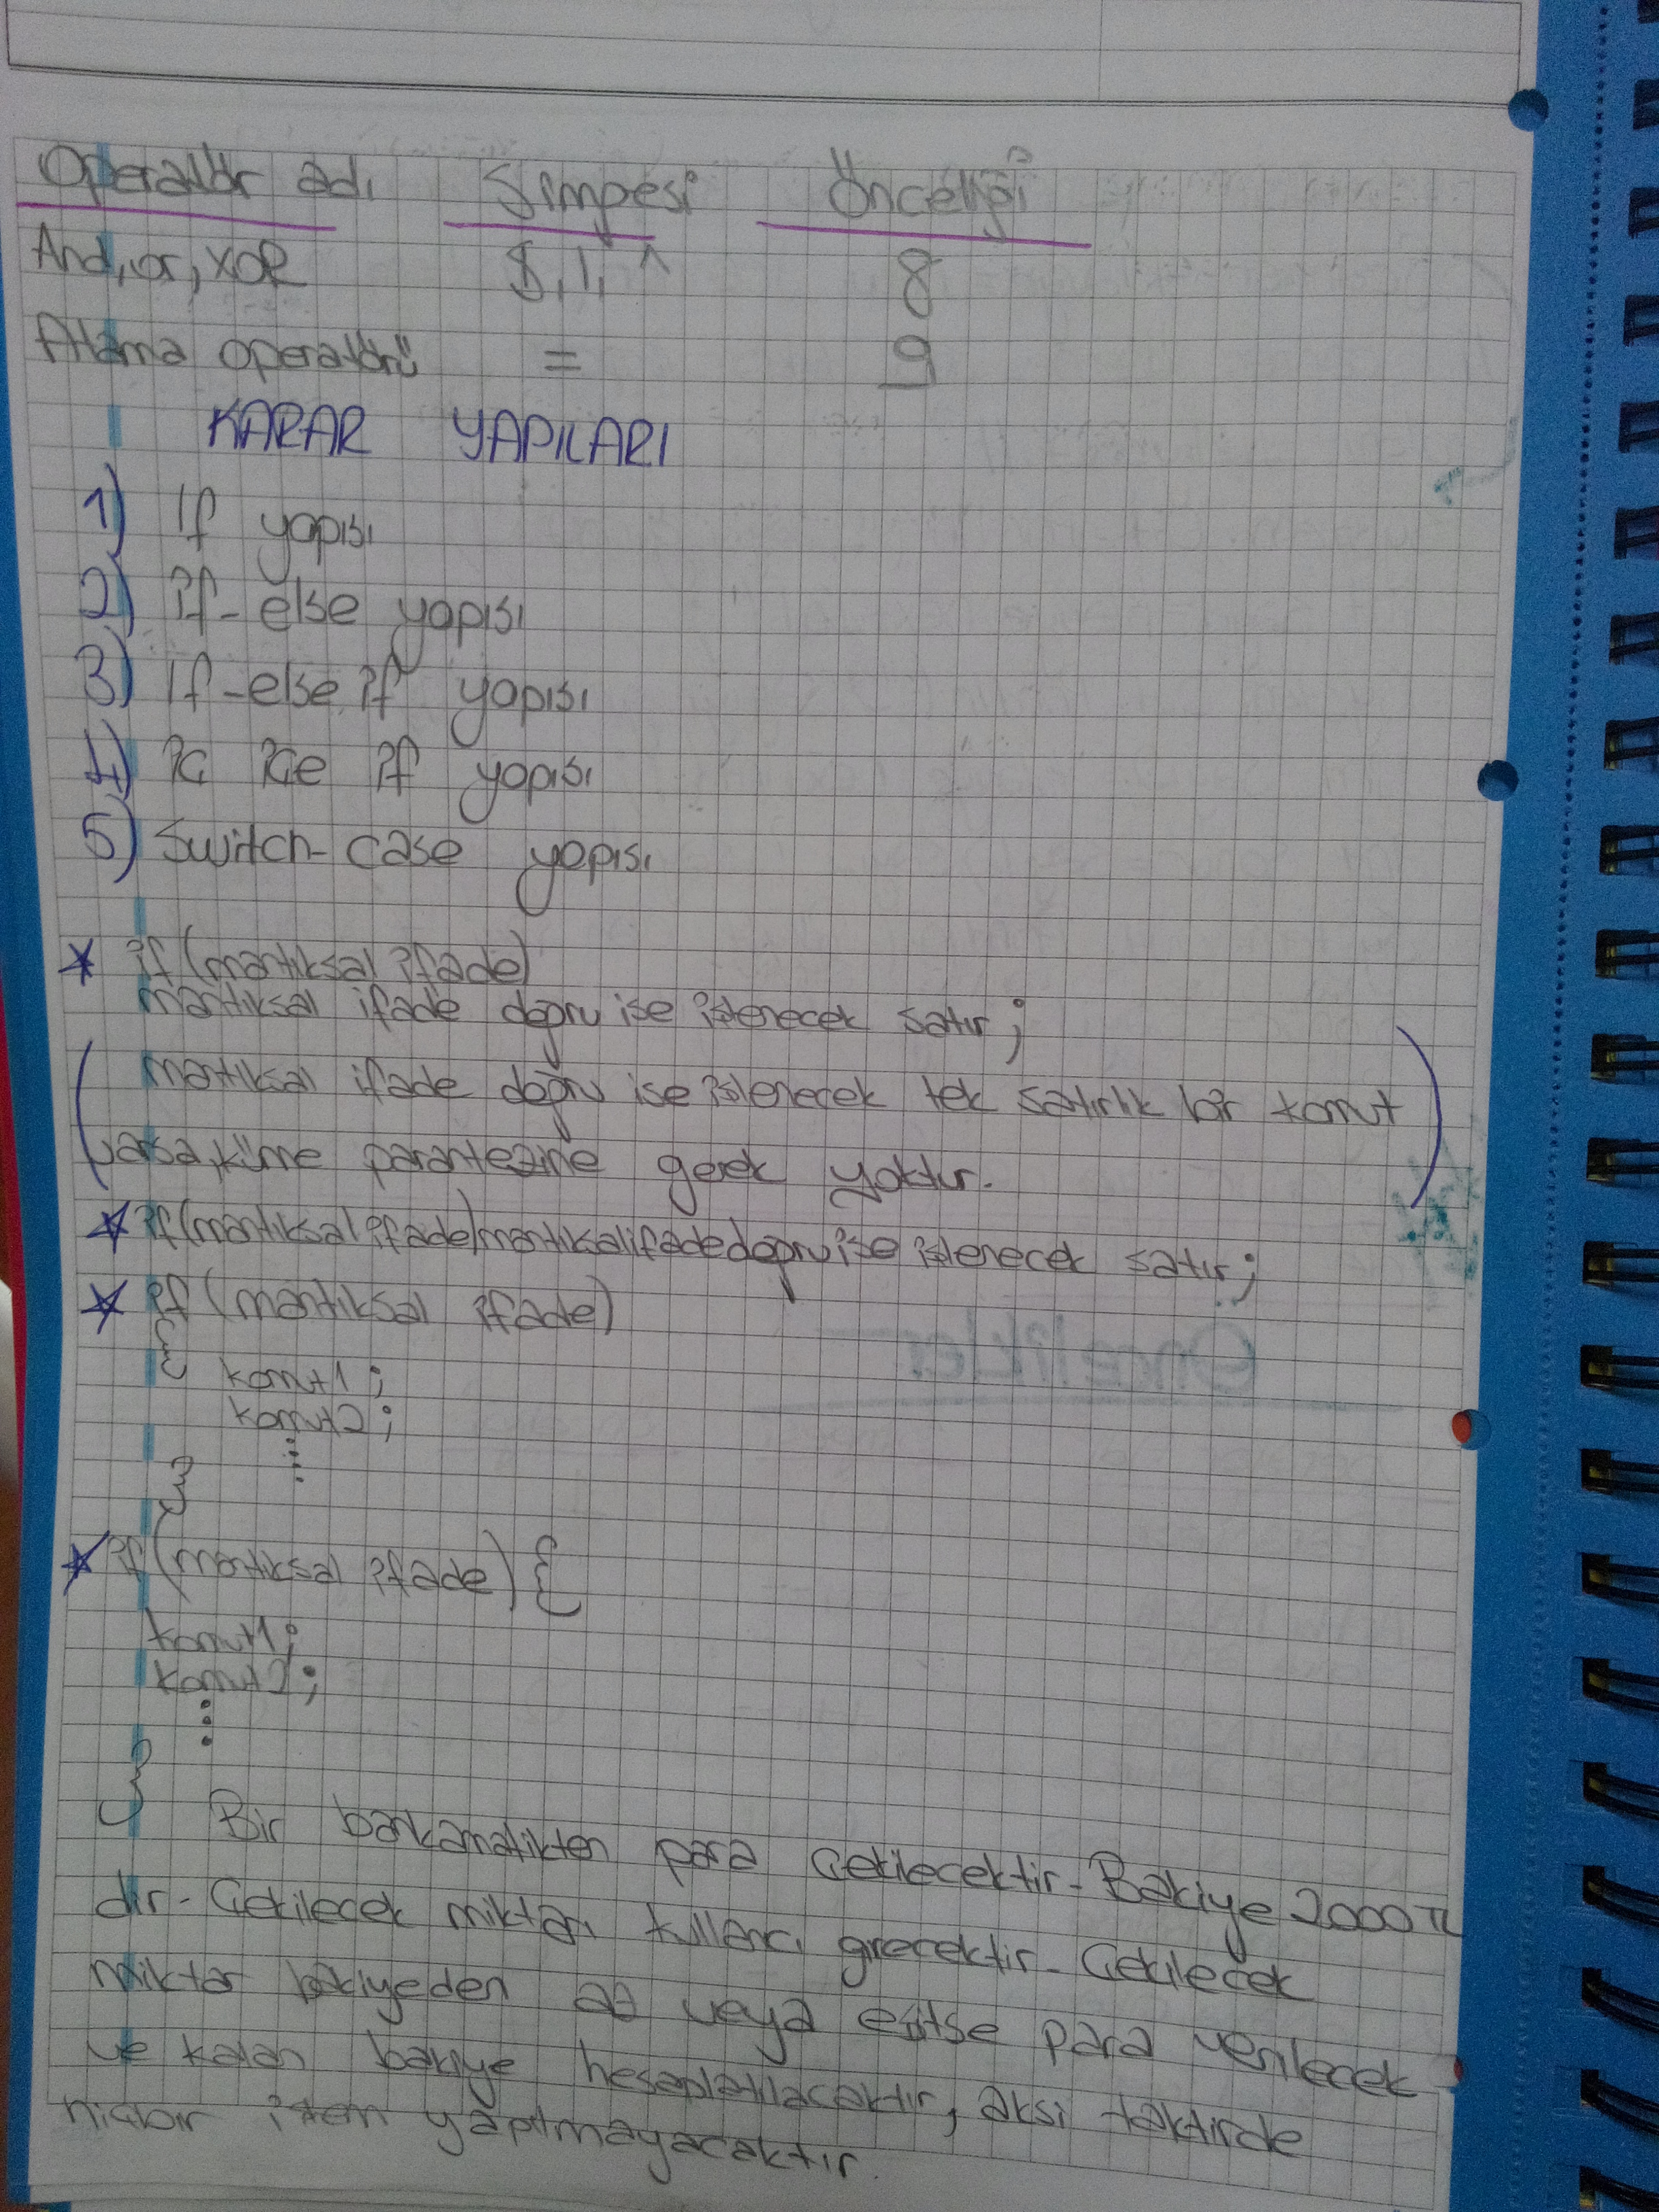 Operatör adı Simgesi Önceliği
And, or, XOR &, |, ^ 8
Atama operatörü = 9
KARAR YAPILARI
1) If yapısı
2) if-else yapısı
3) If-else if yapısı
4) iç içe if yapısı
5) Switch-case yapısı
* if(mantıksal ifade)
mantıksal ifade doğru ise işlenecek satır;
(mantıksal ifade doğru ise işlenecek tek satırlık bir komut
varsa, küme parantezine gerek yoktur.)
* if(mantıksal ifade)mantıksal ifade doğru ise işlenecek satır;
* if (mantıksal ifade)
{
komut1;
komut2;
⋮
}
* if(mantıksal ifade) {
komut1;
komut2;
⋮
}
Bir bankamatikten para çekilecektir. Bakiye 2000 TL
dir. Çekilecek miktarı kullanıcı girecektir. Çekilecek
miktar bakiyeden az veya eşitse para verilecek
ve kalan bakiye hesaplatılacaktır, aksi taktirde
hiçbir işlem yapılmayacaktır.
Öncelikler